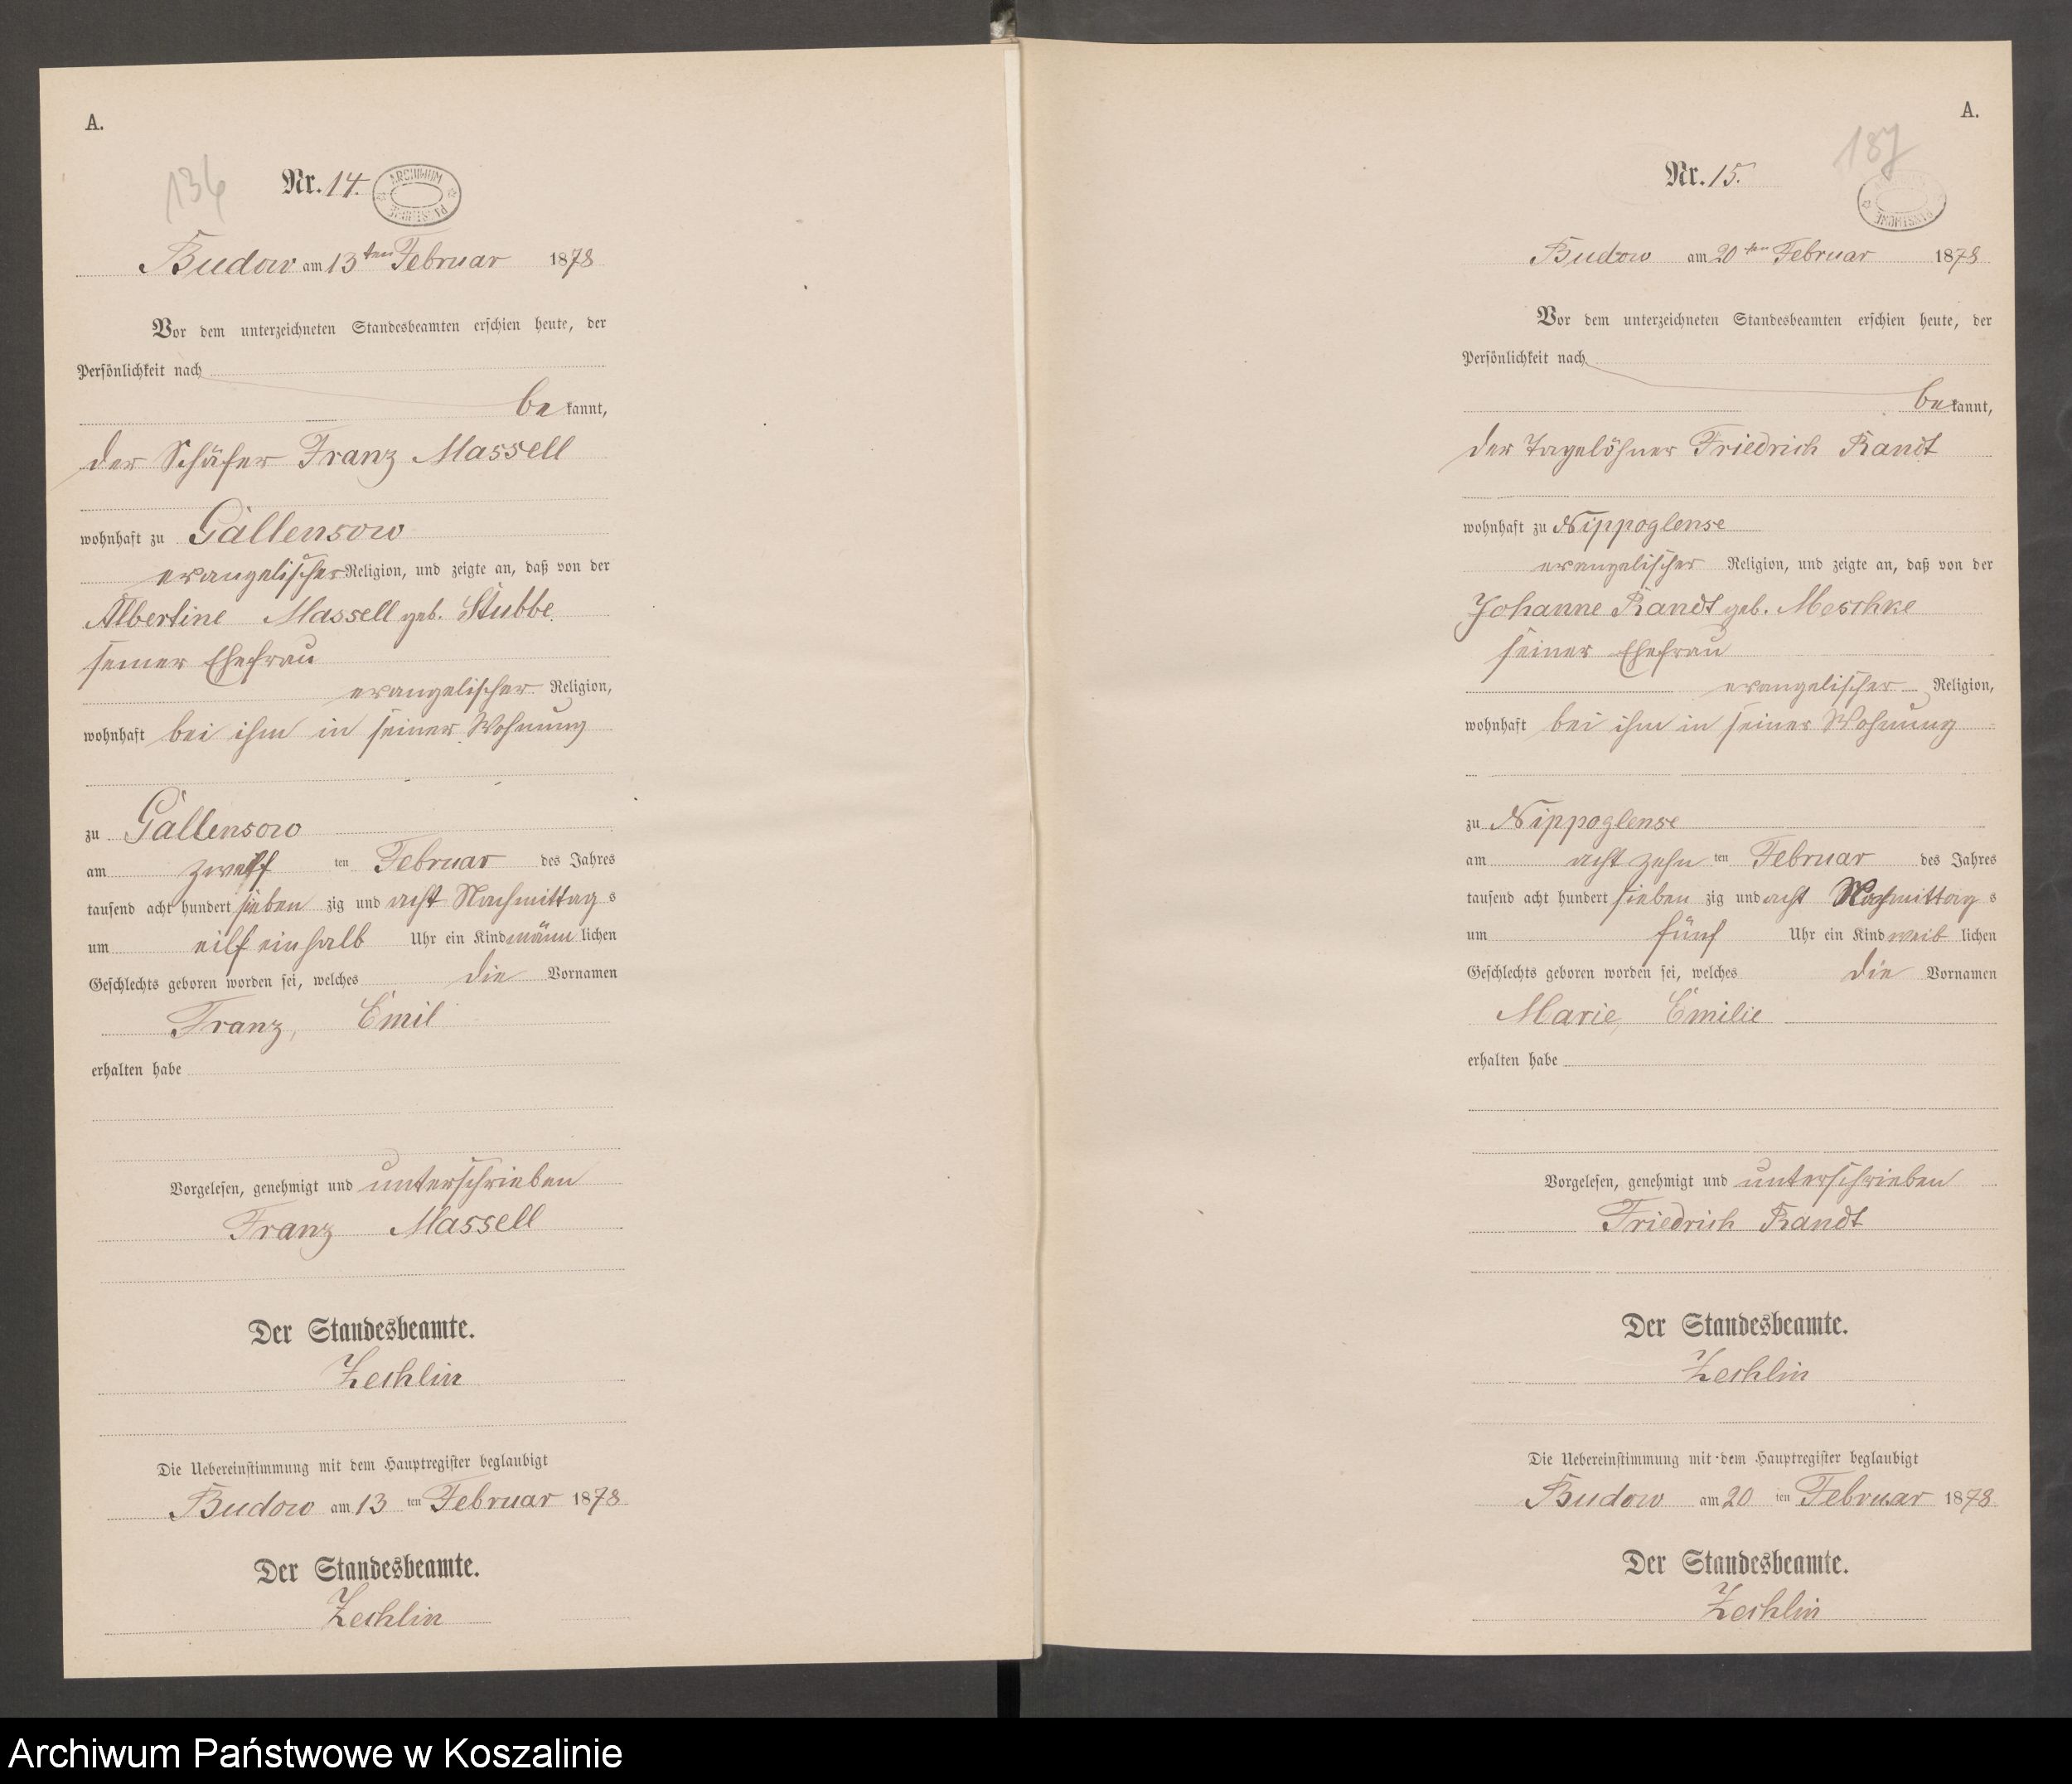 A.
136
Nr. 14.
ARCHIWUM PAŃSTWOWE
Budow am 13ten Februar 1878
Vor dem unterzeichneten Standesbeamten erschien heute, der
Persönlichkeit nach
be kannt,
der Schäfer Franz Massell
wohnhaft zu Gallensow
evangelischer Religion, und zeigte an, daß von der
Albertine Massell geb. Stubbe
seiner Ehefrau
evangelischer Religion,
wohnhaft bei ihm in seiner Wohnung
zu Gallensow
am zwölf ten Februar des Jahres
tausend acht hundert sieben zig und acht Nachmittag s
um eilf einhalb Uhr ein Kind männ lichen
Geschlechts geboren worden sei, welches die Vornamen
Franz, Emil
erhalten habe
Vorgelesen, genehmigt und unterschrieben
Franz Massell
Der Standesbeamte.
Zechlin
Die Uebereinstimmung mit dem Hauptregister beglaubigt
Budow am 13 ten Februar 1878
Der Standesbeamte.
Zechlin
A.
137
Nr. 15.
Budow am 20ten Februar 1878
Vor dem unterzeichneten Standesbeamten erschien heute, der
Persönlichkeit nach
be kannt,
der Tagelöhner Friedrich Randt
wohnhaft zu Nippoglense
evangelischer Religion, und zeigte an, daß von der
Johanne Randt geb. Meschke
seiner Ehefrau
evangelischer Religion,
wohnhaft bei ihm in seiner Wohnung
zu Nippoglense
am acht zehn ten Februar des Jahres
tausend acht hundert sieben zig und acht Nachmittag s
um fünf Uhr ein Kind weib lichen
Geschlechts geboren worden sei, welches die Vornamen
Marie, Emilie
erhalten habe
Vorgelesen, genehmigt und unterschrieben
Friedrich Randt
Der Standesbeamte.
Zechlin
Die Uebereinstimmung mit dem Hauptregister beglaubigt
Budow am 20 ten Februar 1878
Der Standesbeamte.
Zechlin
Archiwum Państwowe w Koszalinie